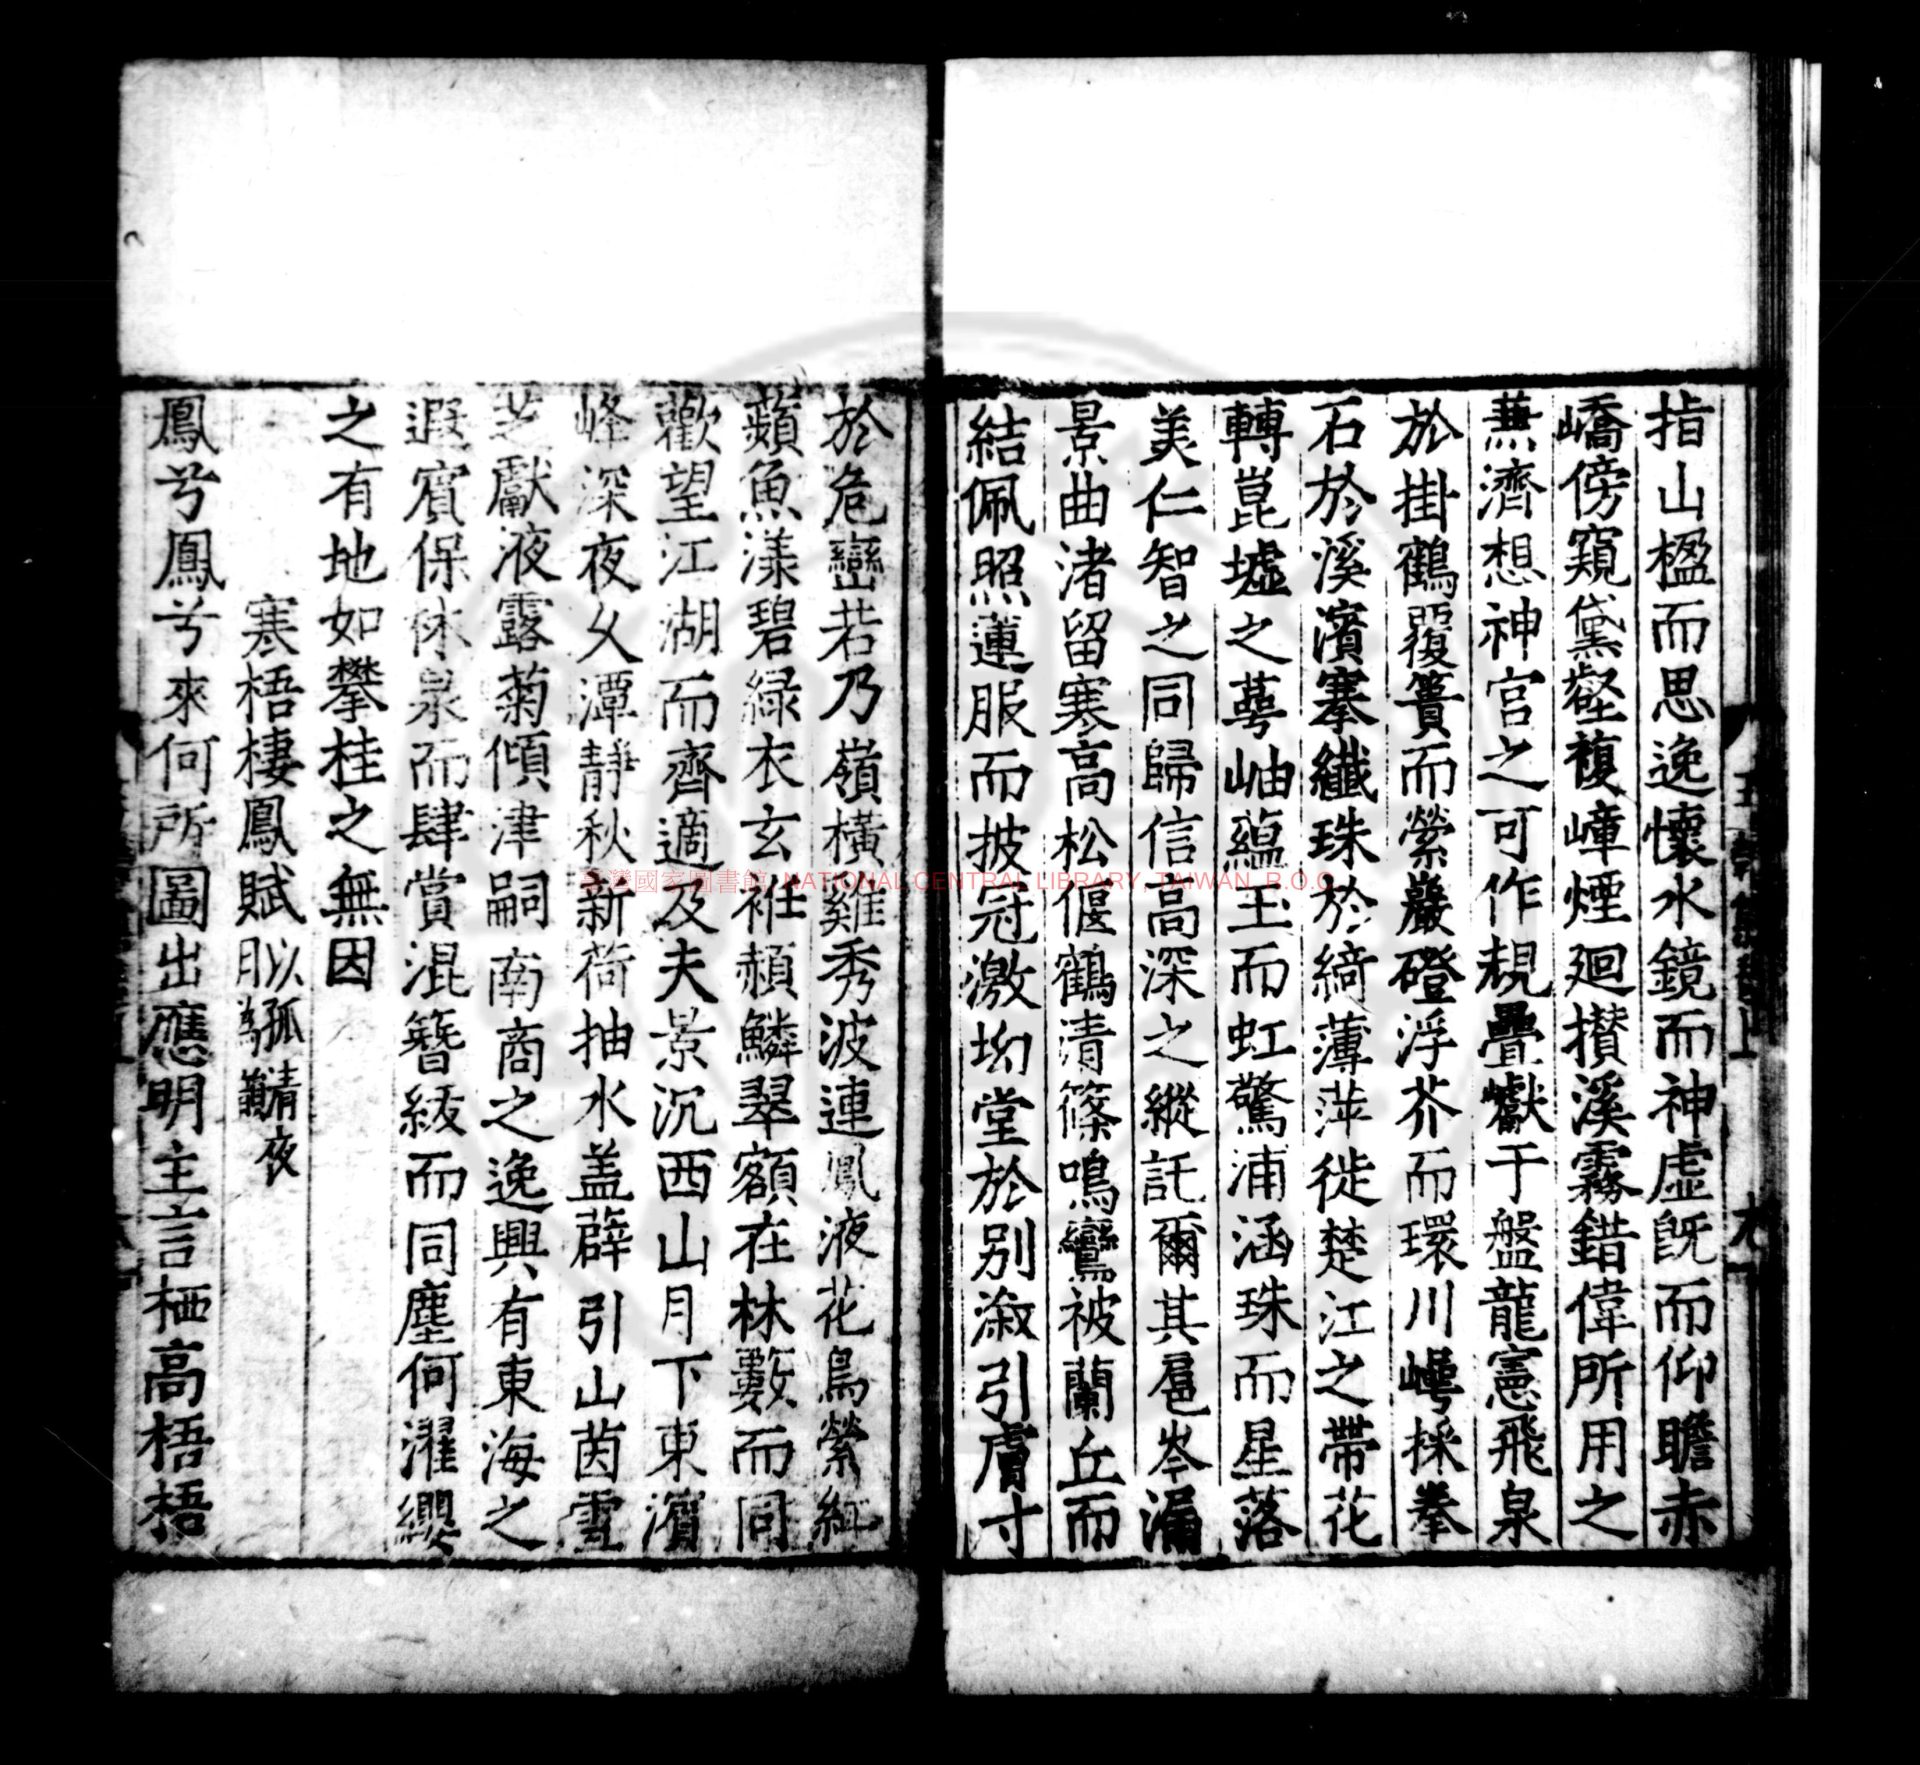 指山楹而思逸懷水鏡而神虛旣而仰瞻赤
嶠傍窺黛壑複嶂煙廻攢溪霧錯偉所用之
蕪濟想神宮之可作規疊巘于盤龍憲飛泉
於掛鶴覆簣而縈巖磴浮芥而環川㠋採拳
石於溪濱搴纖珠於綺薄萍徙楚江之帶花
轉崑墟之萼岫蘊玉而虹驚浦涵珠而星落
美仁智之同歸信高深之縱託爾其扈岑漏
景曲渚留寒高松偃鶴清篠鳴鸞被蘭丘而
結佩照蓮服而披冠激坳堂於別溆引膚寸
於危巒若乃嶺橫雞秀波連鳳液花鳥縈紅
蘋魚漾碧綠衣玄袵赬鱗翠額在林藪而同
歡望江湖而齊適及夫景沉西山月下東濱
峰深夜久潭靜秋新荷抽水盖薜引山茵雪
芝獻液露菊傾津嗣南商之逸興有東海之
遐賓保休泉而肆賞混簪紱而同塵何濯纓
之有地如攀桂之無因
寒梧棲鳳賦以孤清夜月為韻
鳳兮鳳兮來何所圖出應明主言栖高梧梧
臺灣國家圖書館, NATIONAL CENTRAL LIBRARY, TAIWAN, R.O.C.